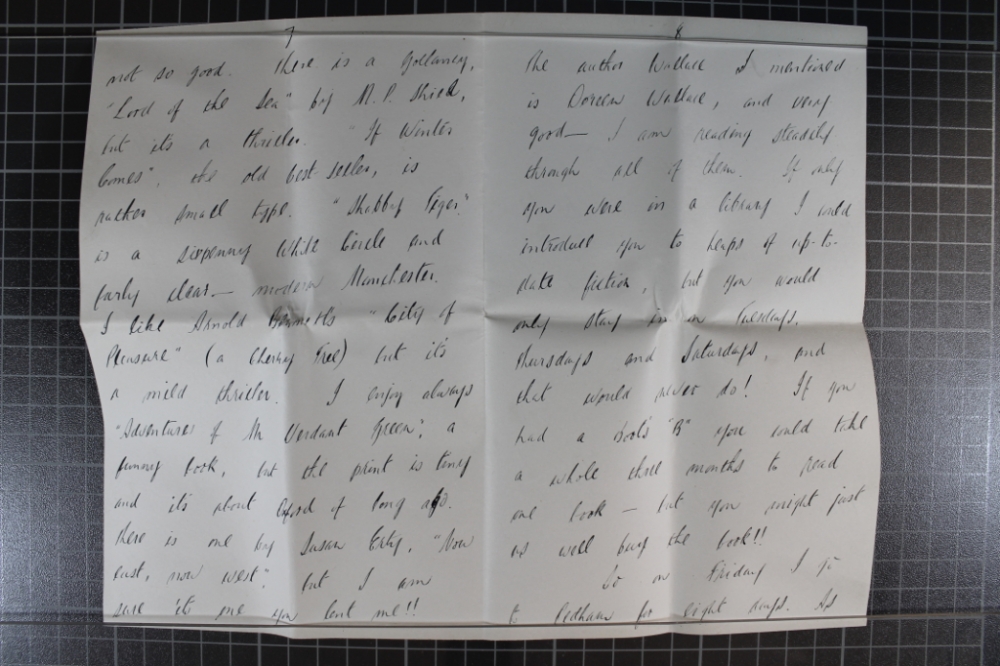 7
not so good. There is a Gollancy,
"Lord of the Sea" by M.P. Shiel,
but its a thriller. "If Winter
Comes", the old best seller, is
rather small type. "Shabby Tiger"
is a sixpenny White Circle and
fairly clear — modern Manchester.
I like Arnold Bennetts "City of
Pleasure" (a Cherry Tree) but it's
a mild thriller. I enjoy always
"Adventures of Mr Verdant Green", a
funny book, but the print is tiny
and it's about Oxford of long ago.
There is one by Susan Ertz, "Now
east, now west" but I am
sure it's one you lent me!!
8
The author Wallace I mentioned
is Doreen Wallace, and very
good — I am reading steadily
through all of them. If only
you were in a library I could
introduce you to heaps of up-to-
date fiction, but you would
only stay in on Tuesdays,
Thursdays and Saturdays, and
that would never do! If you
had a Boots "B" you could take
a whole three months to read
one book — but you might just
as well buy the book!!
So on Friday I go
to Pedham for eight days. As